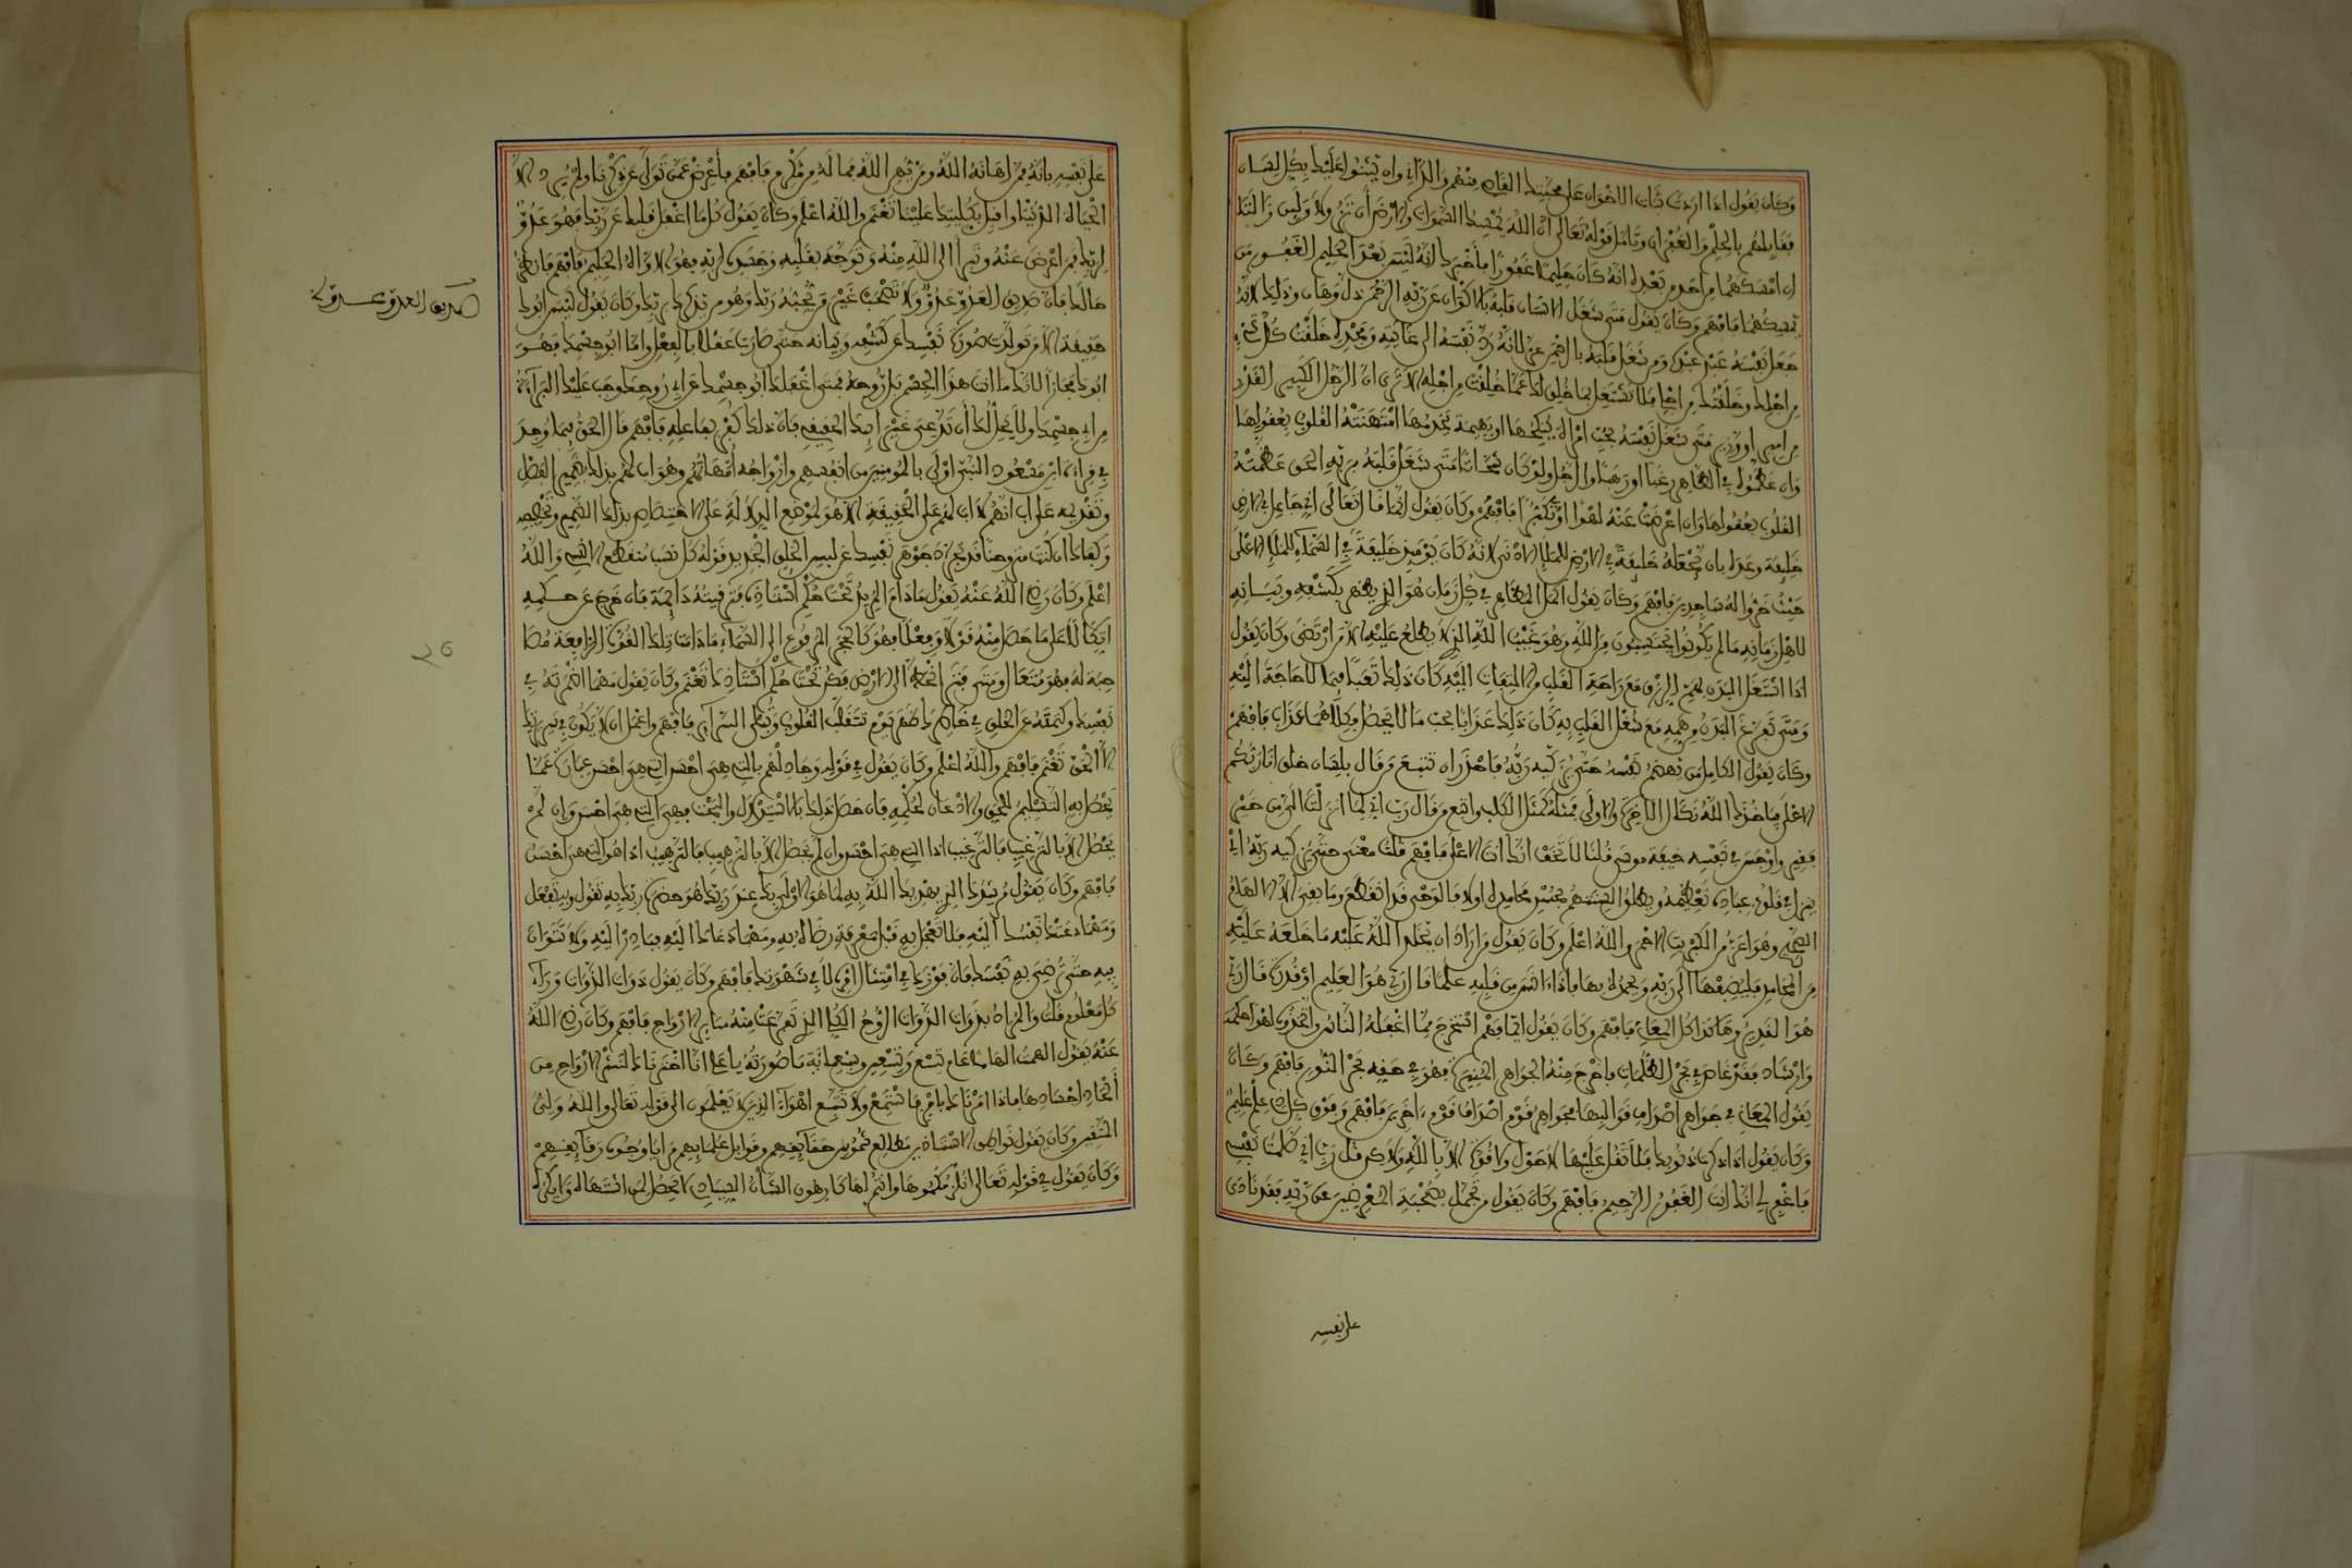 وكان يقول اذا اردت ثبات الاخوان على محبتك القاصي منهم والداني وان يثنوا عليك بكل لسان
فقابلهم بالحلم والغفران وتامل قوله تعالى ان الله يمسك السموات والارض أن تزولا ولين زالتا
ان امسكهما من احد من بعده انه كان حليما غفورا فأخبر بانه ليس بعد الحليم الغفور من
يمسكهما فافهم وكان يقول متى شغل الانسان قلبه بالاكوان عن ربه الرحمن ذل وهان وذلك لانه
جعل نفسه عبد عبده ومن شغل قلبه بالرحمن عز لانه رد نفسه الى غايته وبحده خلقت كل شيء
من اجلك وخلقتك من اجلي فلا تشتغل بما خلق لك عما خلقت من اجله الا ترى ان الرجل الكبير القدر
من امير او وزير متى شغل نفسه بحب امراة ينكحها او بهيمة يخدمها امتهنته القلوب بعقولها
وان عظموه في الظاهر رغبا او رهبا والرجل ولو كان شحاتا متى شغل قلبه بربه الحق عظمته
القلوب بعقولها وان اعرضت عنه لهوا او تكبرا فافهم وكان يقول انما قال تعالى اني جاعل في الارض
خليفة وعده بان يجعله خليفة في الارض للملإ الادنى لانه كان يومئذ خليفة في السماء للملإ الاعلى
حيث خروا له ساجدين فافهم وكان يقول اهل الظاهر في كل زمان هو الذي يظهر بكشفه وبيانه
لاهل زمانه ما لم يكونوا يحتسبون من الله وهو غيب الله الذي لا يطلع عليه الا من ارتضى وكان يقول
اذا اشتغل البدن بهم الرزق مع راحة القلب والتفات اليه كان ذلك تعبا فيما لا حاجة اليه
ومتى تفرغ البدن وهمه مع شغل القلب به كان ذلك عذابا بحب ما لا يحصل وكلاهما عذاب فافهم
وكان يقول الكامل من يهضم نفسه حتى يزكيه ربه فاحذر ان تتبع من قال بلسان حاله انا ربكم
الاعلى فاخذه الله نكال الاخرة والاولى فمثله كمثل الكلب واتبع من قال رب اني لما انزلت الي من خير
فقير واوجس في نفسه خيفة موسى قلنا لا تخف انك انت الاعلى فافهم قلت معنى حتى يزكيه ربه اي
ينزل في قلوب عباده تعظيمه ويطلق السنتهم بحسن محامده اولا فالوحي قد انقطع وما بقي الا الالهام
الصحيح وهو اعز من الكبريت الاحمر والله اعلم وكان يقول من اراد ان يحفظ الله عليه ما خلعه عليه
من المحامد فليضفها الى ربه ويحمده بها فاذا شرس قلبه علما قال ربي هو العليم او قدرة قال ربي
هو القدير وهكذا كل المعاني فافهم وكان يقول انما فهم استخرج مما اغفله الناس واتخذوه لهوا حكمة
وارشاد فقد غاص في بحر الظلمات فاخرج منه الجواهر الثمينة فهو في حقه بحر النور فافهم وكان
يقول المعاني في جواهر اصداف قوالبها فجواهر قوم اصداف قوم ءاخرين فافهم وفوق كل ذي علم عليم
وكان يقول اذا ذكرت ذنوبك فلا تقل عليها لا حول ولا قوة الا بالله ولكن قل رب اني ظلمت نفسي
فاغفر لي انك انت الغفور الرحيم فافهم وكان يقول من تجمل بصحبة المعرضين عن ربه فقد نادى
على نفسه
على نفسه بانه ممن اهانه الله ومن يهن الله فما له من مكرم فافهم فأعرض عمن تولى عن ذكرنا ولم يرد الا
الحياة الدنيا واقبل بكليتك علينا تغنم والله اعلم وكان يقول كل ما اغفل قلبك عن ربك فهو عدو
لربك فمن اعرض عنه وتبرأ الى الله منه وتوجه بقلبه وجسده لربه فهو الاواه الحليم فافهم فانظر في
حالك فان صديق العدو عدو ولا تصحب غير من يحبه ربك وهو من تذكرك به ربك وكان يقول ليس ابوك
حقيقة الا من تولدت صورة نفسك عن كشفه وبيانه حتى صارت عقلا بالفعل واما ابو جسمك فهو
ابوك مجازا لانك ما انت هذا الجسم بل روحه فمتى اغفلك ابو جسمك عن ابي روحك وجب عليك البراءة
من ابي جسمك ولا يحل لك أن تدعي غير ابيك الحقيقي فان ذلك كفر بفاعله فافهم قال الحق فيما وجد
في قراءة ابن مسعود النبي اولى بالمومنين من انفسهم وازواجه امهاتهم وهو اب لهم بذلك بصميم الفضل
وتفريعه على اب انهم لا اب لهم على الحقيقة الا هو لموضع الدلالة على الاختصاص بذلك الضمير وتخصيصه
وكفاك ان كنت من روحنا قد تجردت جوهر نفسك عن لبس الخلق الجديد قوله كل نسب منقطع الا نسبي والله
اعلم وكان رضي الله عنه يقول ما دام المريد تحت حكم استاذه فترقيته دائمة فان خرج عن حكمه
اتكالا على ما حصل منه قولا وفعلا فهو كالحجر المرفوع الى السماء ما دامت تلك القوة الرافعة مصا
حبة له فهو متعال ومتى فترت انحط الى الارض فكن تحت حكم استاذك تغنم وكان يقول مهما اضمرته في
نفسك وكتمته عن الخلق في خاطرك ظهر يوم تتقلب القلوب وتبلى السرائر فافهم واعمل ان لا يكون في سريرتك
الا الحق تغنم فافهم والله اعلم وكان يقول في قوله وجادلهم بالتي هي احسن التي هي احسن عبارة عما
يحصل به التسليم للحق والاذعان لحكمه فان حصل ذلك بالاستدلال والبحث فهي التي هي احسن وان لم
يحصل الا بالترغيب فالترغيب اذا التي هي احسن وان لم يحصل الا بالترهيب فالترهيب اذا هو التي هي احسن
فافهم وكان يقول مرشدك الذي يهديك الله به لما هو الاولى بك عند ربك هو حضرة ربك به تقول وبه تفعل
ومهما دعتك نفسك اليه فلا تعجل به قبل معرفة رضاه به ومهما دعاك اليه فبادر اليه ولا تتوان
فيه حتى ترضي به نفسك فان فوزك في امتثال امره لا في شهوتك فافهم وكان يقول ذوات الذوات وراء
كل معلوم قلت والمراد بذوات الذوات الروح الكلي الذي تفرعت منه سائر الارواح فافهم وكان رضي الله
عنه يقول الهمت الهاما عام تسع وتسعين وسبعمائة ما صورته يا علي انا اخترناك لنشر الارواح من
أجداث اجسادها فاذا امرناك بامر فاستمع ولا تتبع اهواء الذين لا يعلمون الى قوله تعالى والله ولي
المتقين وكان يقول خواطر الاستاذ من مطالع شموس حقائقهم وقوابل علمائهم مرايا وجوه رقائقهم
وكان يقول في قوله تعالى انلزمكموها وانتم لها كارهون الشأن التيسان لا تحصل لمن اشتهاه وان كره
صديق العدو عدو